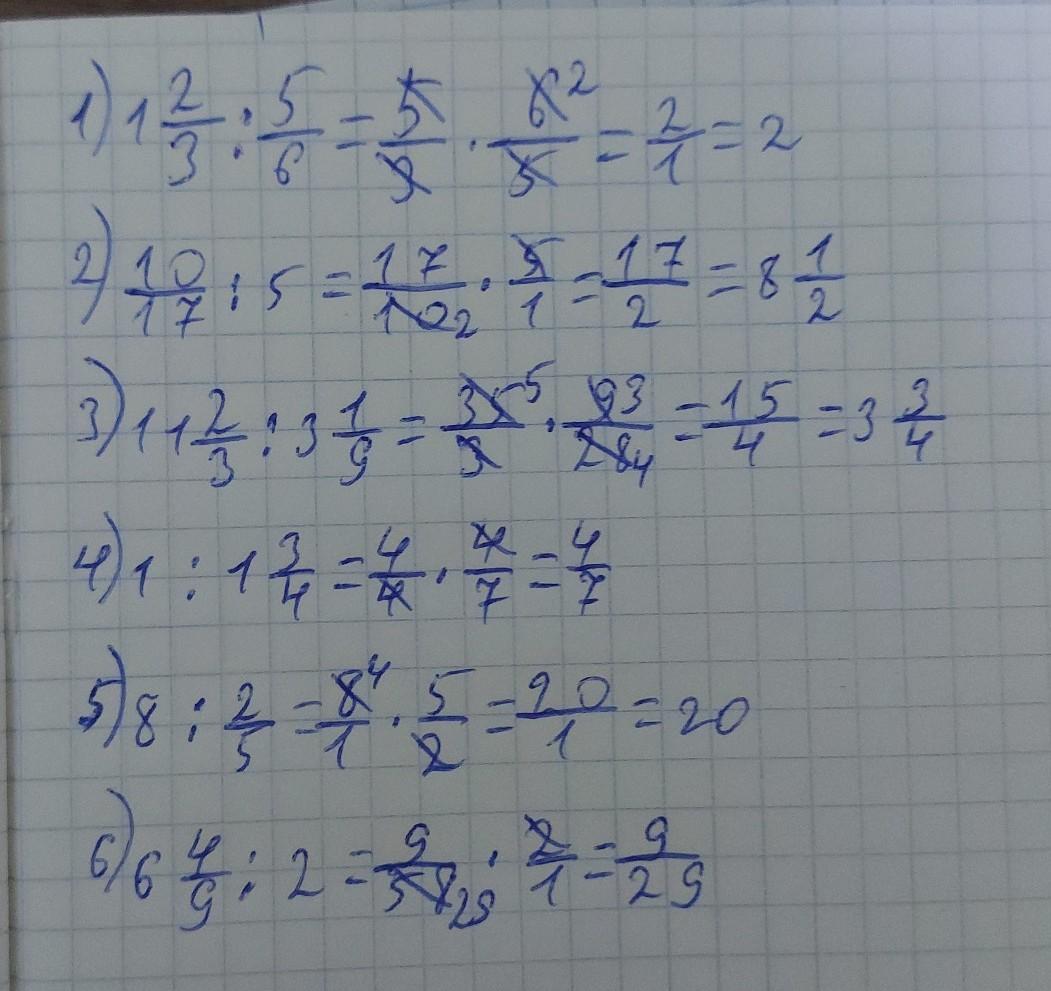 1) 1 2/3 : 5/6 = 5/3 · 6/5 2 = 2/1 = 2
2) 10/17 : 5 = 17/10 2 · 5/1 = 17/2 = 8 1/2
3) 11 2/3 : 3 1/9 = 35/3 5 · 9/28 3 4 = 15/4 = 3 3/4
4) 1 : 1 3/4 = 4/4 · 4/7 = 4/7
5) 8 : 2/5 = 8/1 4 · 5/2 = 20/1 = 20
6) 6 4/9 : 2 = 9/58 29 · 2/1 = 9/29